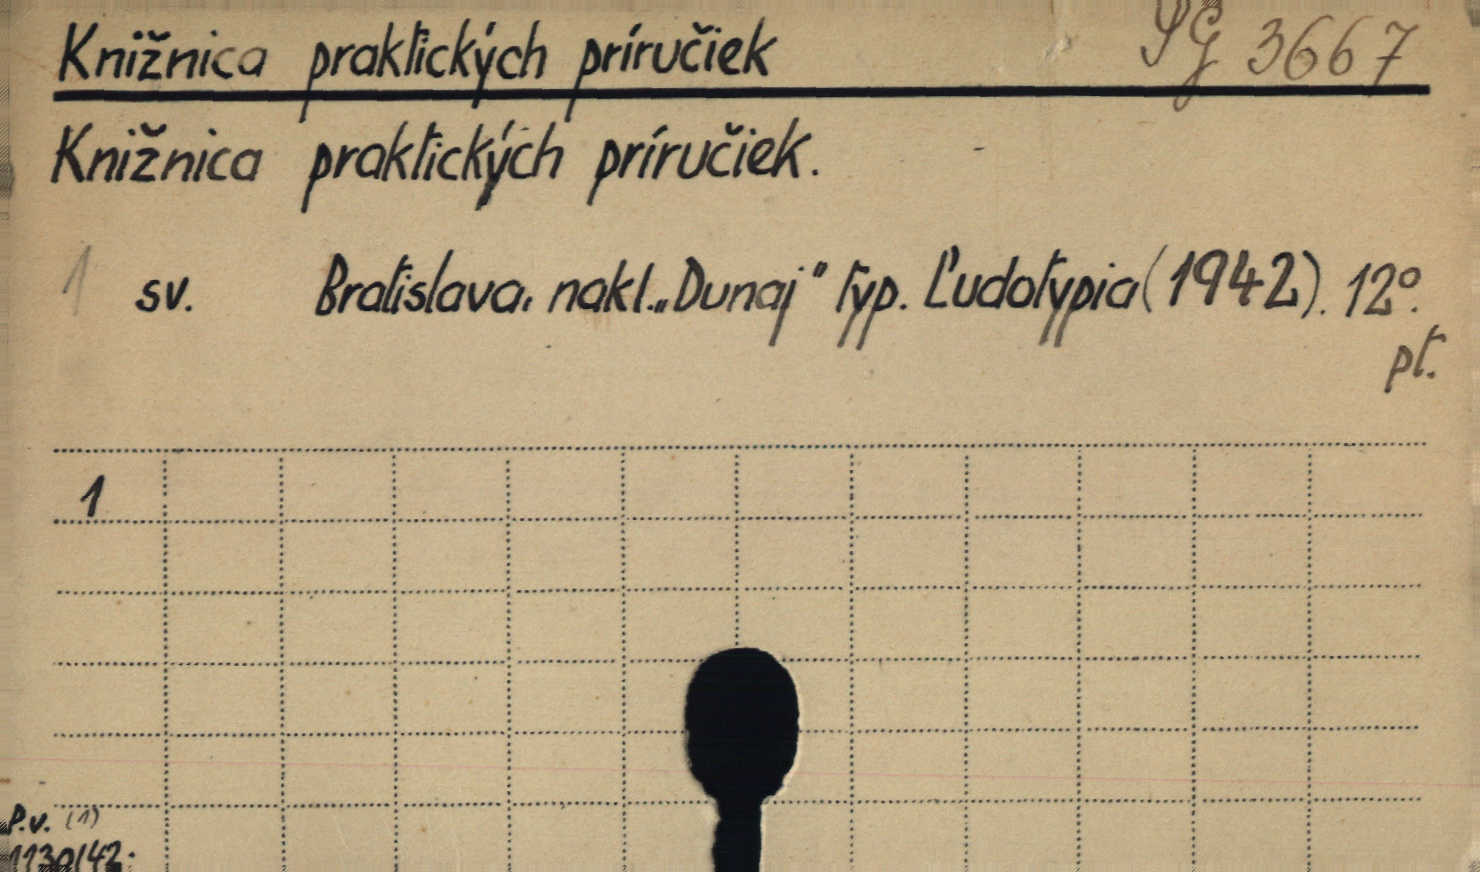 Knižnica praktických príručiek SG 3667
Knižnica praktických príručiek.
1 sv. Bratislava, nakl. „Dunaj" Typ. Ľudotypia (1942). 12°.
pt.
1
P.v. (1)
1130/42.